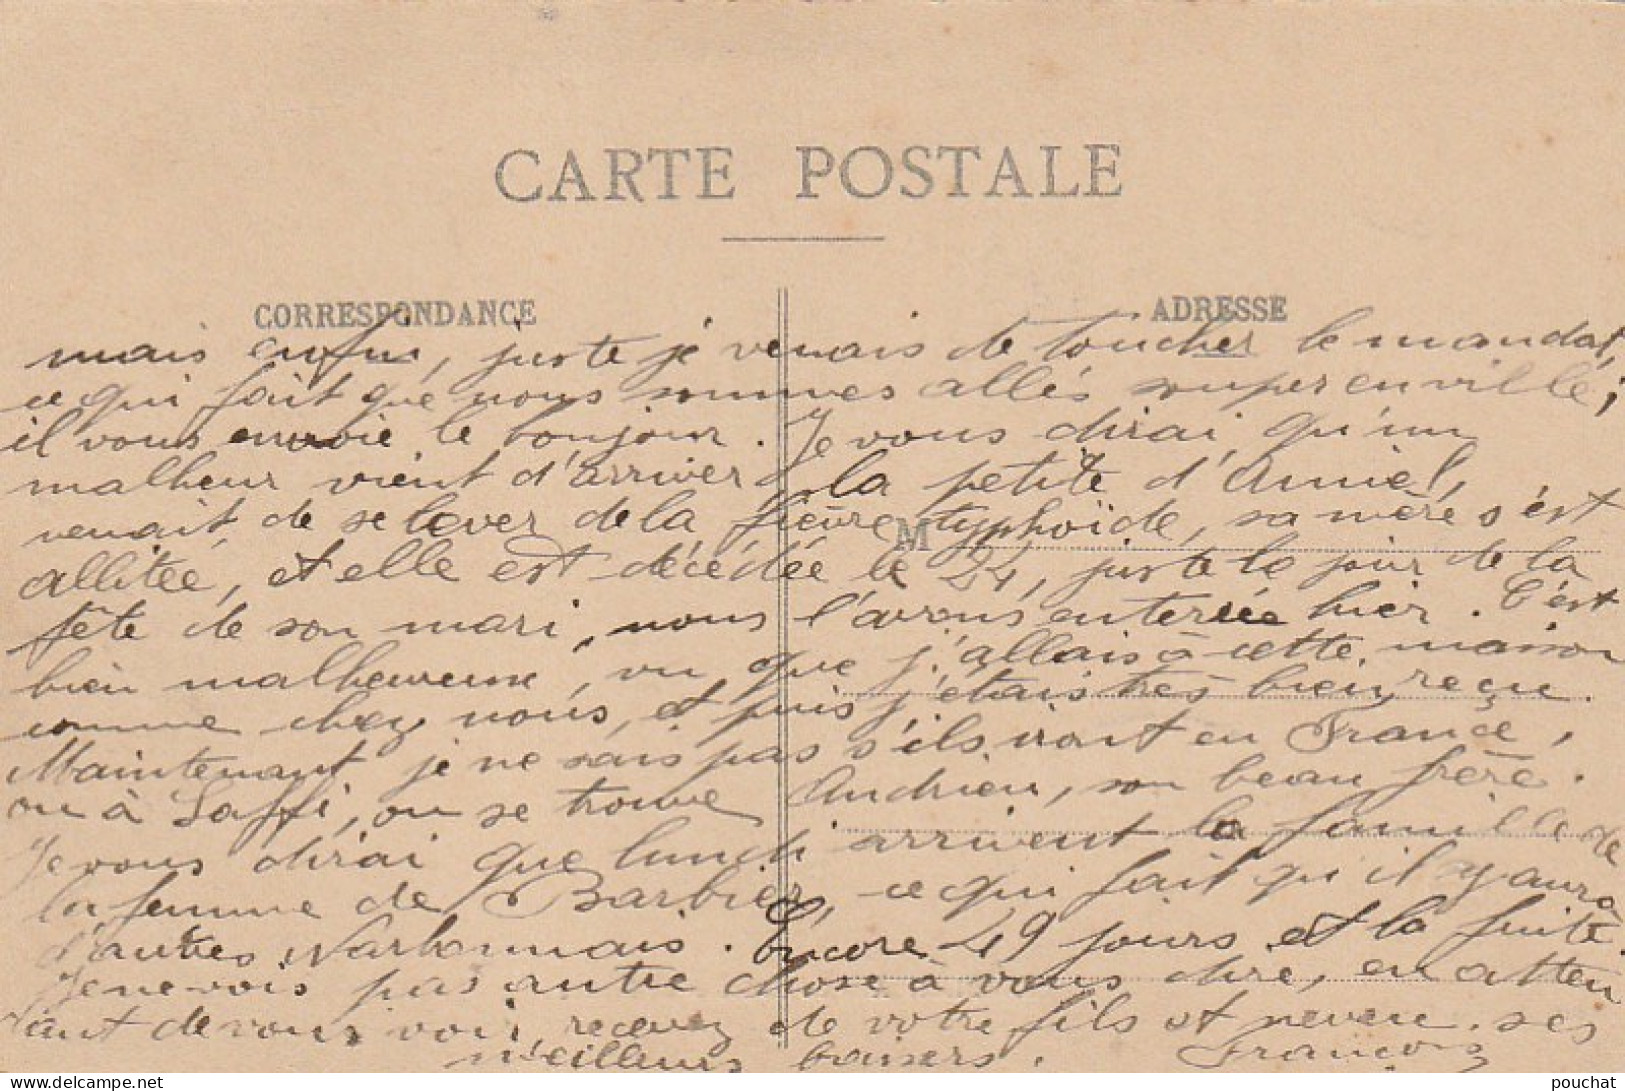 CARTE POSTALE
CORRESPONDANCE
ADRESSE
mais enfin, juste je venais de toucher le mandat,
ce qui fait que nous sommes allés souper en ville;
il vous envoie le bonjour. Je vous dirai qu'un
malheur vient d'arriver, la petite d'Amiel,
venait de se lever de la fièvre typhoïde, sa mère s'est
M
allitée, et elle est décédée le 24, juste le jour de la
fête de son mari, nous l'avons enterrée hier. C'est
bien malheureuse, vu que j'allais à cette maison
comme chez nous, et puis j'étais très bien reçu.
Maintenant je ne sais pas s'ils iront en France,
ou à Saffi, ou se trouve Andrieu, son beau frère.
Je vous dirai que lundi arrivent la famille de
la femme de Barbier, ce qui fait qu'il y aura
d'autres Narbonnais. Encore 49 jours et la fuite.
Je ne vois pas autre chose à vous dire, en atten
dant de vous voir, recevez de votre fils et neveu ses
meilleurs baisers. François
pouchat
www.delcampe.net